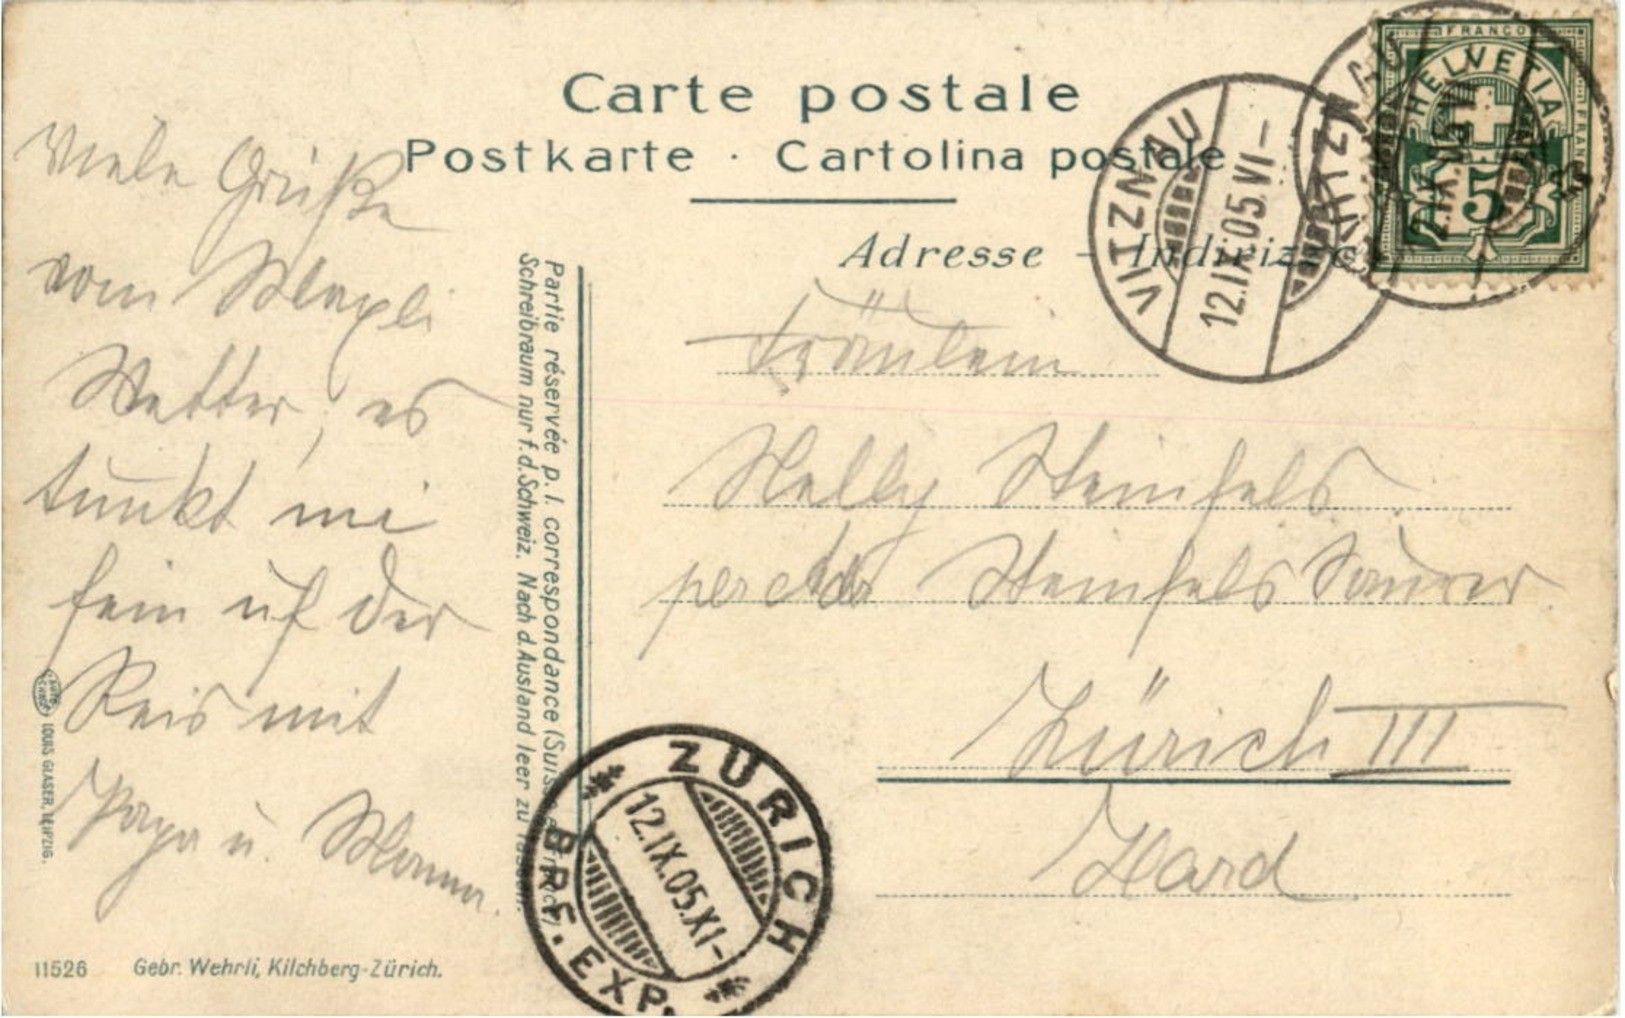 Carte postale
Postkarte · Cartolina postale
Adresse - Indirizzo
FRANCO
HELVETIA
5
VITZNAU
12.IX.05.VI-
VITZNAU
12.IX.05.VI-
Viele Grüße
vom
Wetter, es
tunkt mi
fein uf der
Reis mit
Papa u. Mama.
Partie réservée p. l. correspondance (Suisse
Schreibraum nur f. d. Schweiz. Nach d. Ausland leer zu
Fräulein
Nelly Steinfels
Steinfels Saurer
Zürich III
Hard
ZÜRICH
12.IX.05.XI-
BRF. EXP.
LOUIS GLASER, LEIPZIG.
11526 Gebr. Wehrli, Kilchberg-Zürich.